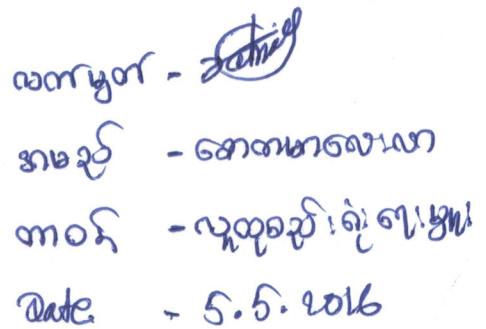 လက်မှတ် -
အမည် - စောထာမာလေးလာ
တာဝန် - လူထုစည်းရုံးရေးမှူး
Date - 5.5.2016